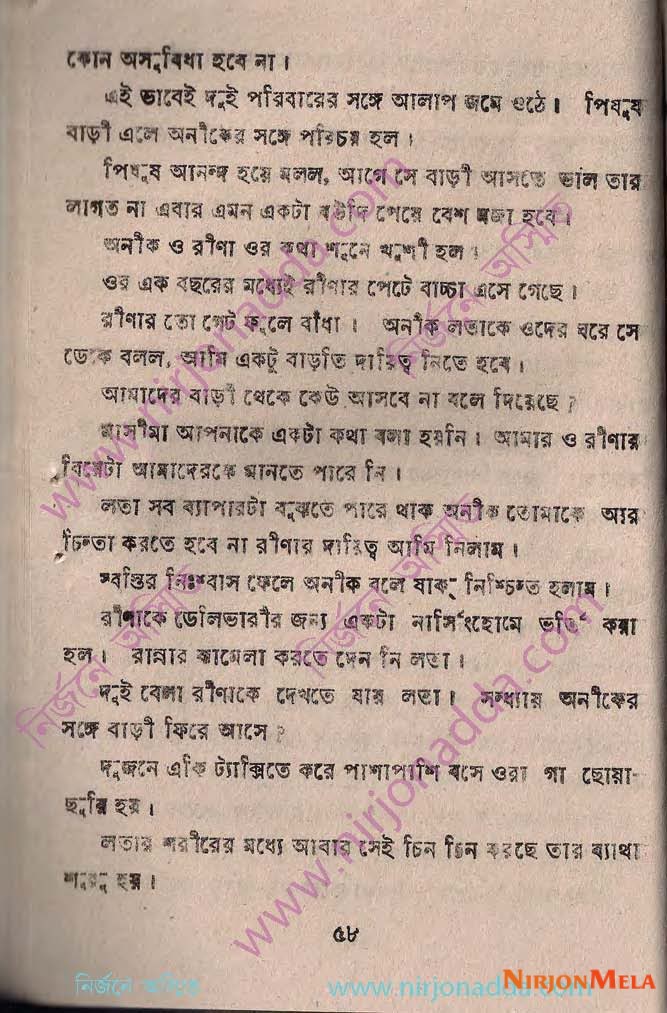 কোন অসুবিধা হবে না।
এই ভাবেই দুই পরিবারের সঙ্গে আলাপ জমে ওঠে। পিযুষ
বাড়ী এলে অনীকের সঙ্গে পরিচয় হল।
পিযুষ আনন্দ হয়ে বলল, আগে সে বাড়ী আসতে ভাল তার
লাগত না এবার এমন একটা বউদি পেয়ে বেশ মজা হবে।
অনীক ও রীণা ওর কথা শুনে খুশী হল।
ওর এক বছরের মধ্যেই রীণার পেটে বাচ্চা এসে গেছে।
রীণার তো পেট ফুলে বাঁধা। অনীক লতাকে ওদের ঘরে সে
ডেকে বলল, আমি একটু বাড়তি দায়িত্ব নিতে হবে।
আমাদের বাড়ী থেকে কেউ আসবে না বলে দিয়েছে?
মাসীমা আপনাকে একটা কথা বলা হয়নি। আমার ও রীণার
বিয়েটা আমাদেরকে মানতে পারে নি।
লতা সব ব্যাপারটা বুঝতে পারে থাক অনীক তোমাকে আর
চিন্তা করতে হবে না রীণার দায়িত্ব আমি নিলাম।
স্বস্তির নিঃশ্বাস ফেলে অনীক বলে যাক্ নিশ্চিন্ত হলাম।
রীণাকে ডেলিভারীর জন্য একটা নার্সিংহোমে ভর্তি করা
হল। রান্নার ঝামেলা করতে দেন নি লতা।
দুই বেলা রীণাকে দেখতে যায় লতা। সন্ধ্যায় অনীকের
সঙ্গে বাড়ী ফিরে আসে?
দুজনে একি ট্যাক্সিতে করে পাশাপাশি বসে ওরা গা ছোয়া-
ছুরি হয়।
লতার শরীরের মধ্যে আবার সেই চিন চিন করছে তার ব্যাথা
শুরু হয়।
৫৮
নির্জনে অস্মিত
www.nirjonadda.com
NIRJONMELA
www.nirjonadda.com
নির্জনে অস্মিত
নির্জনে অস্মিত
নির্জনে অস্মিত
www.nirjonadda.com